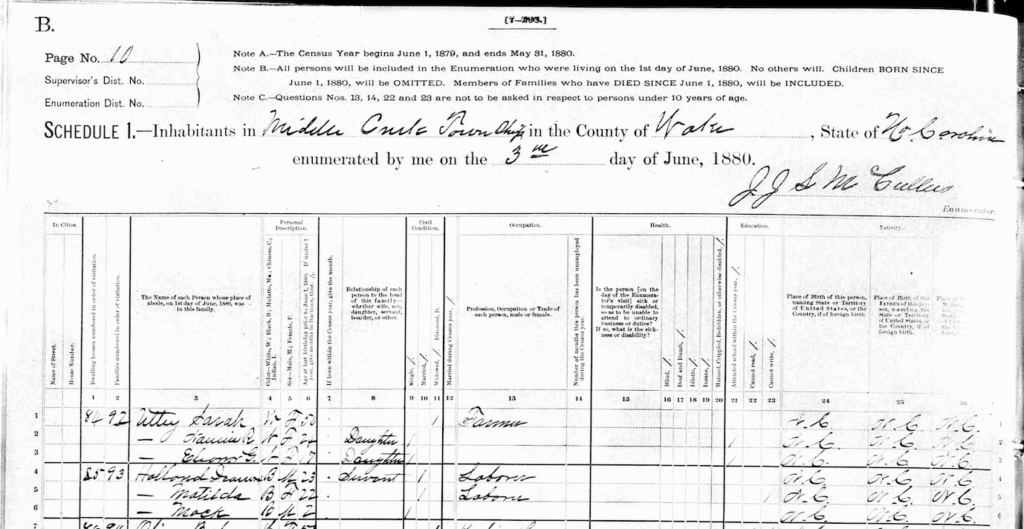 B.
[7-296.]
Page No. 10
Supervisor's Dist. No.
Enumeration Dist. No.
Note A.—The Census Year begins June 1, 1879, and ends May 31, 1880.
Note B.—All persons will be included in the Enumeration who were living on the 1st day of June, 1880. No others will. Children BORN SINCE
June 1, 1880, will be OMITTED. Members of Families who have DIED SINCE June 1, 1880, will be INCLUDED.
Note C.—Questions Nos. 13, 14, 22 and 23 are not to be asked in respect to persons under 10 years of age.
SCHEDULE I.—Inhabitants in Middle Creek Township in the County of Wake, State of No. Carolina
enumerated by me on the 3rd day of June, 1880.
J J L McCullers
Enumerator.
In Cities. Personal Description. Civil Condition. Occupation. Health. Education. Nativity.
Name of Street.
House Number.
Dwelling houses numbered in order of visitation.
Families numbered in order of visitation.
The Name of each Person whose place of abode, on 1st day of June, 1880, was in this family.
Color—White, W.; Black, B.; Mulatto, Mu.; Chinese, C.; Indian, I.
Sex—Male, M.; Female, F.
Age at last birthday prior to June 1, 1880. If under 1 year, give months in fractions, thus: 3/12
If born within the Census year, give the month.
Relationship of each person to the head of this family—whether wife, son, daughter, servant, boarder, or other.
Single, /
Married, /
Widowed, / Divorced, D.
Married during Census year, /
Profession, Occupation or Trade of each person, male or female.
Number of months this person has been unemployed during the Census year.
Is the person [on the day of the Enumerator's visit] sick or temporarily disabled, so as to be unable to attend to ordinary business or duties? If so, what is the sickness or disability?
Blind, /
Deaf and Dumb, /
Idiotic, /
Insane, /
Maimed, Crippled, Bedridden, or otherwise disabled, /
Attended school within the Census year, /
Cannot read, /
Cannot write, /
Place of Birth of this person, naming State or Territory of United States, or the Country, if of foreign birth.
Place of Birth of the Father of this person, naming the State or Territory of United States, or the Country, if of foreign birth.
1 2 3 4 5 6 7 8 9 10 11 12 13 14 15 16 17 18 19 20 21 22 23 24 25 26
1 84 92 Utley Sarah W F 50 / Farmer N.C. N.C. N.C. 1
2 — W F 24 Daughter / / N.C. N.C. N.C. 2
3 — G. W F Daughter / / N.C. N.C. N.C. 3
4 85 93 Holland B M 23 Servant / Laborer N.C. N.C. N.C. 4
5 — Matilda B F 22 / Laborer / N.C. N.C. N.C. 5
6 — Mack B M 2 / N.C. N.C. N.C. 6